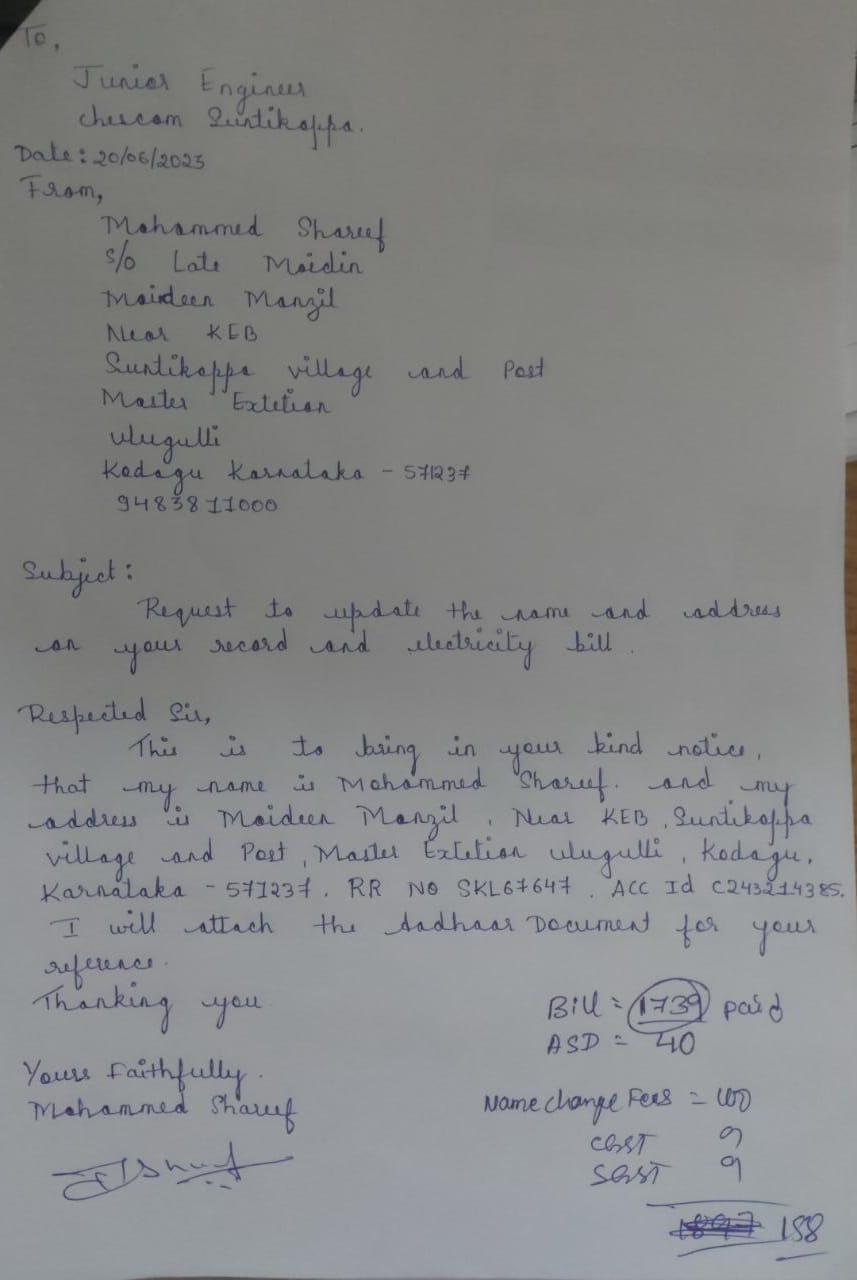 To,
Junior Engineer
chescom Suntikoppa.
Date: 20/06/2023
From,
Mohammed Shareef
S/o Late Moidin
Moideen Manzil
Near KEB
Suntikoppa village and Post
Master Extetion
ulugulli
Kodagu Karnataka - 571237
9483811000
Subject:
Request to update the name and address
on your record and electricity bill.
Respected Sir,
This is to bring in your kind notice,
that my name is Mohammed Shareef. and my
address is Moideen Manzil, Near KEB, Suntikoppa
village and Post, Master Extetion ulugulli, Kodagu,
Karnataka - 571237. RR NO SKL67647. ACC Id C243214385.
I will attach the Aadhaar Document for your
reference.
Thanking you
Bill = 1739 paid
ASD = 40
Yours Faithfully.
Mohammed Shareef
Name change Fees = 100
CGST 9
SGST 9
158